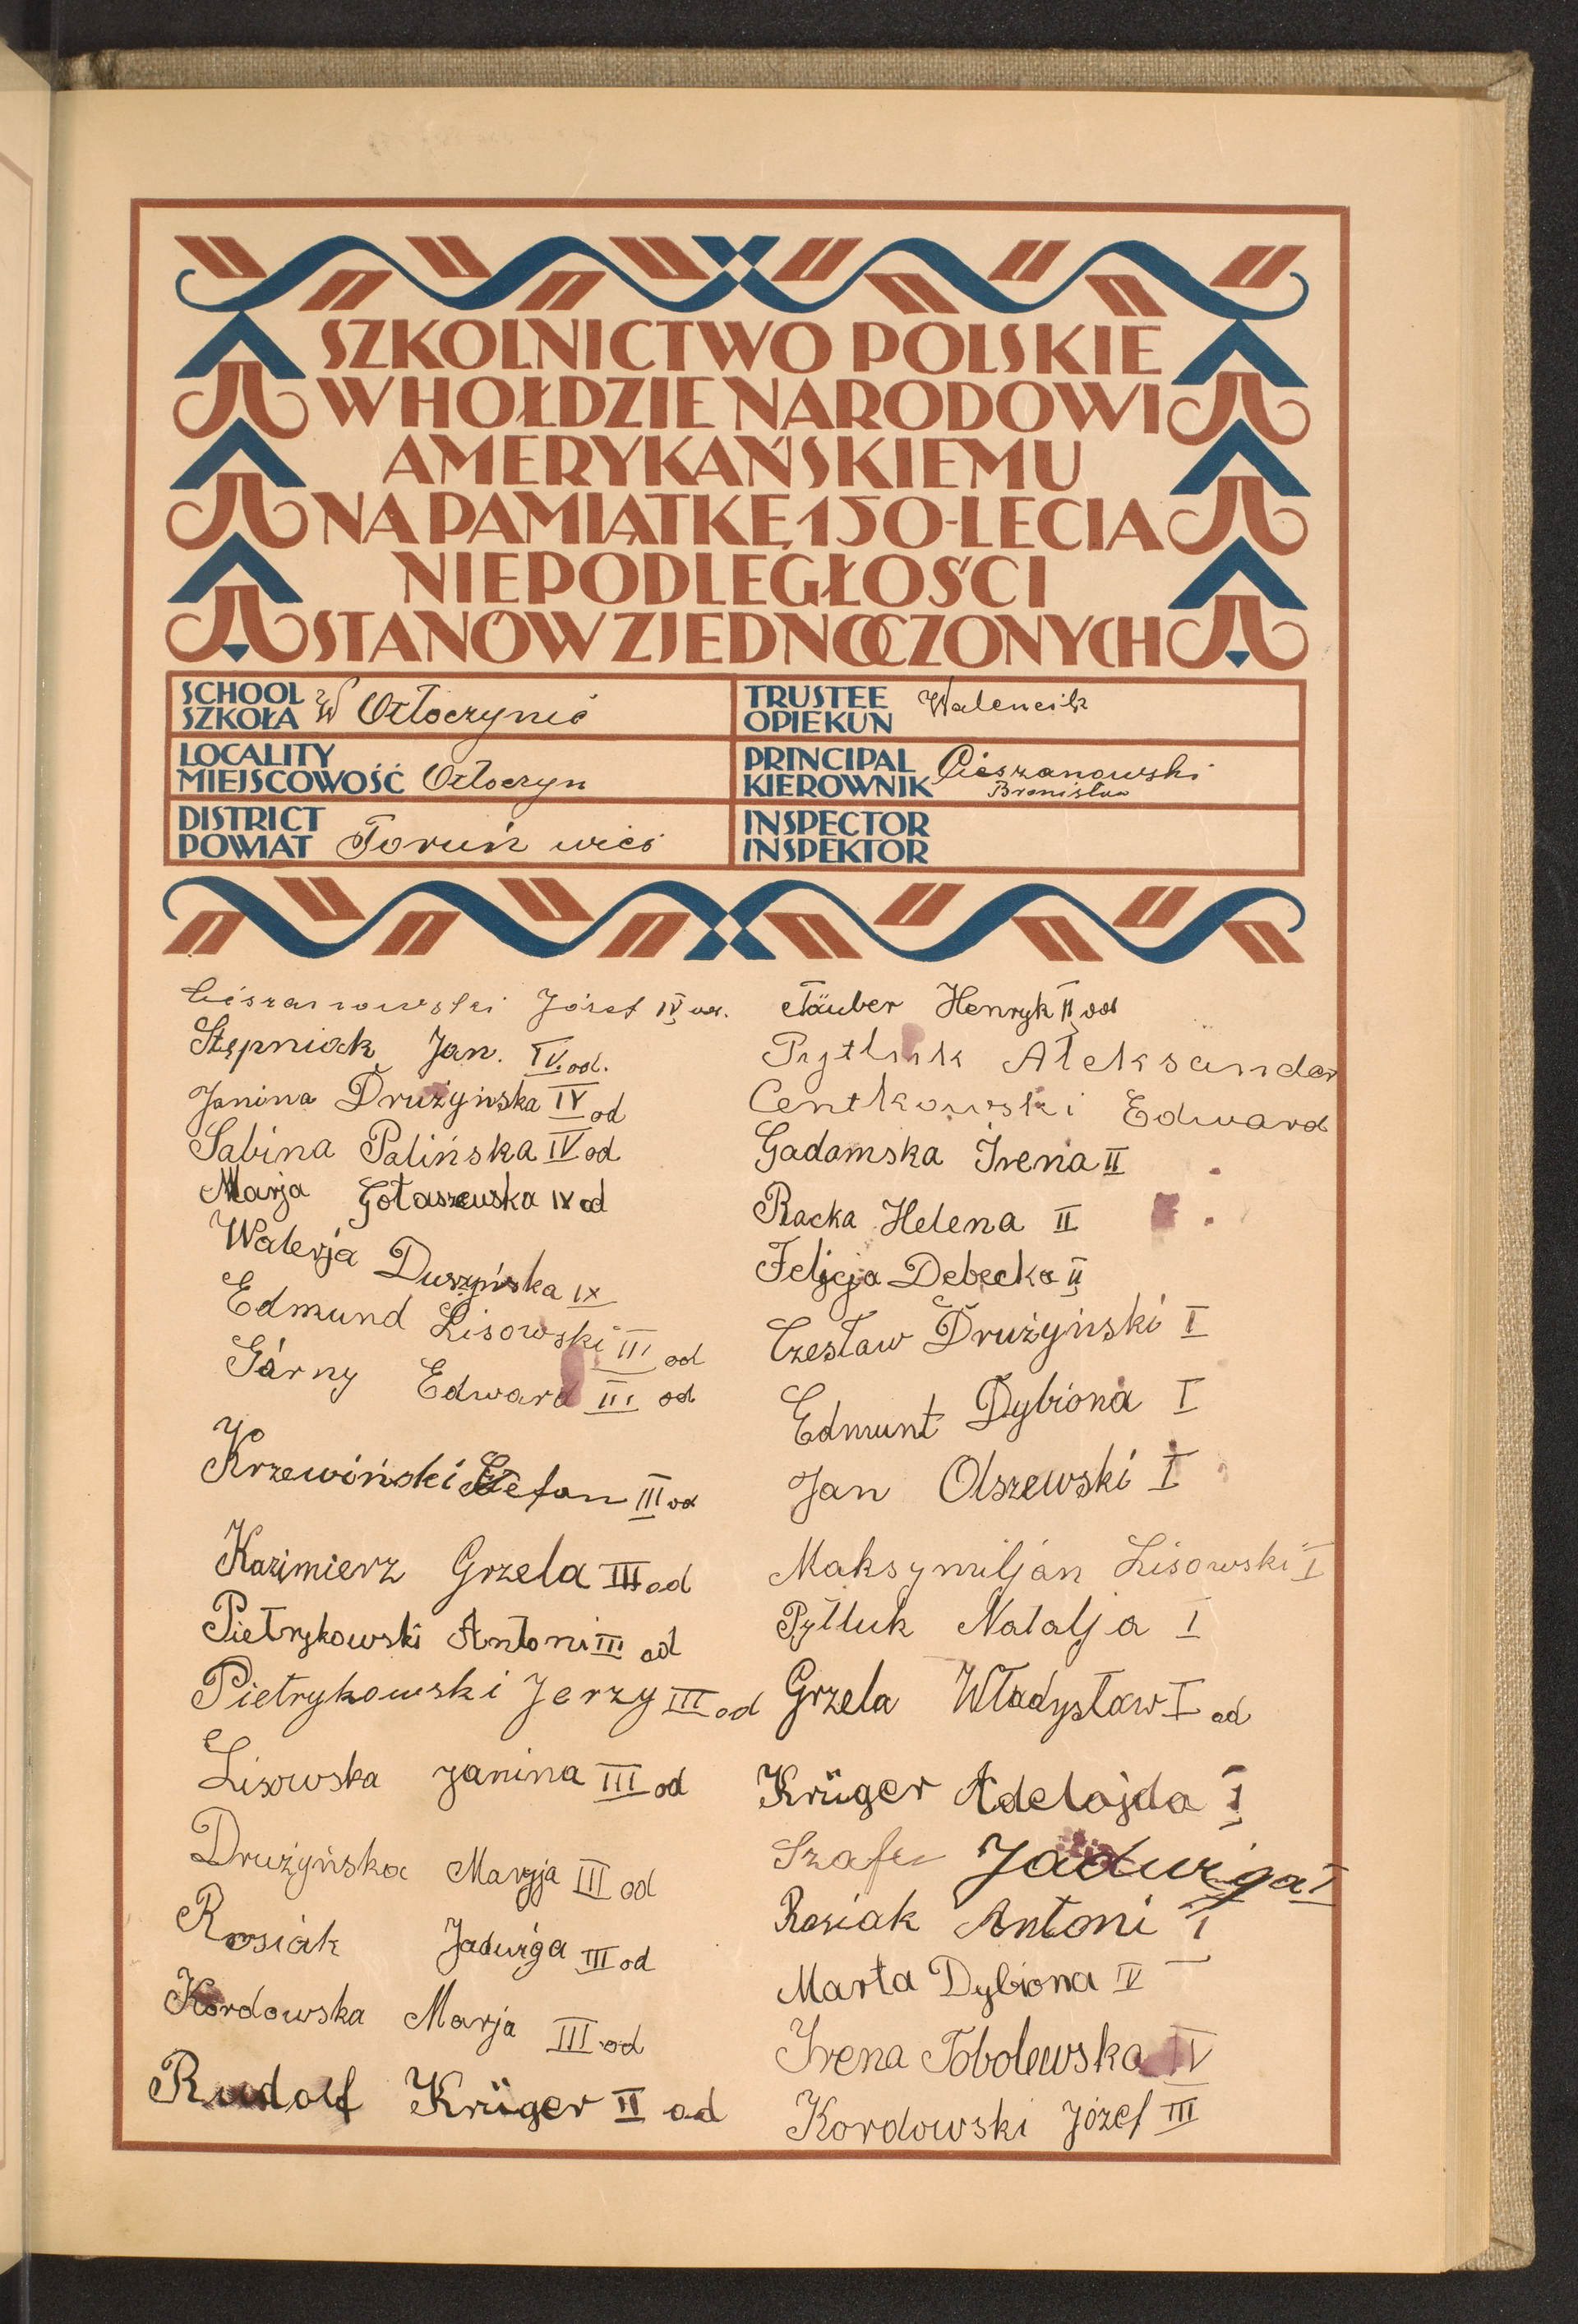 SZKOLNICTWO POLSKIE
W HOŁDZIE NARODOWI
AMERYKAŃSKIEMU
NA PAMIĄTKĘ 150-LECIA
NIEPODLEGŁOŚCI
STANÓW ZJEDNOCZONYCH
SCHOOL
SZKOŁA W Otłoczynie
LOCALITY
MIEJSCOWOŚĆ Otłoczyn
DISTRICT
POWIAT Toruń wieś
TRUSTEE
OPIEKUN Walencik
PRINCIPAL
KIEROWNIK Cieszanowski
Bronisław
INSPECTOR
INSPEKTOR
Cieszanowski Józef IV od.
Stępniak Jan. IV. od.
Janina Drużyńska IV od
Sabina Palińska IV od
Marja Gołaszewska IV od
Walerja Duszyńska IX
Edmund Lisowski III od
Górny Edward III od
Krzewiński Stefan III od
Kazimierz Grzela III od
Pietrykowski Antoni III od
Pietrykowski Jerzy III od
Lisowska Janina III od
Drużyńska Maryja III od
Rosiak Jadwiga III od
Kordowska Marja III od
Rudolf Krüger II od
Täuber Henryk II od
Pytluk Aleksander
Centkowski Edward
Gadomska Irena II
Racka Helena II
Felicja Debecka II
Czesław Drużyński I
Edmunt Dybiona I
Jan Olszewski I
Maksymiljan Lisowski I
Pytluk Natalja I
Grzela Władysław I od
Krüger Adelajda I
Jadwiga I
Rosiak Antoni I
Marta Dybiona IV
Irena Tobolewska IV
Kordowski Józef III